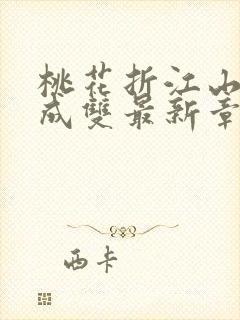 桃花折江山
成雙最新章
西卡